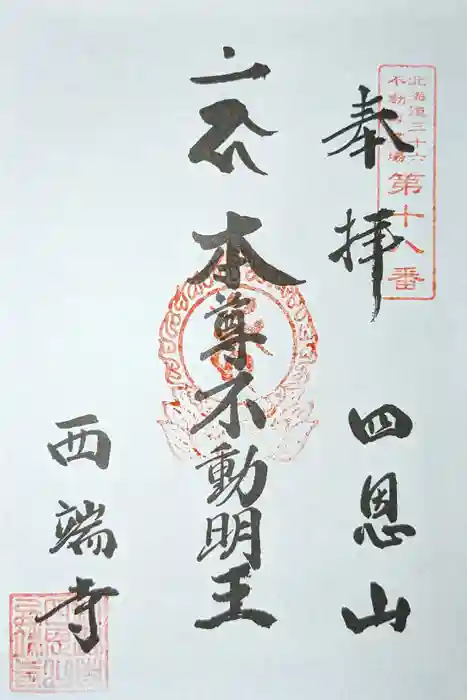 北海道三十六
不動尊霊場
第十八番
奉拝
四恩山
本尊不動明王
西端寺